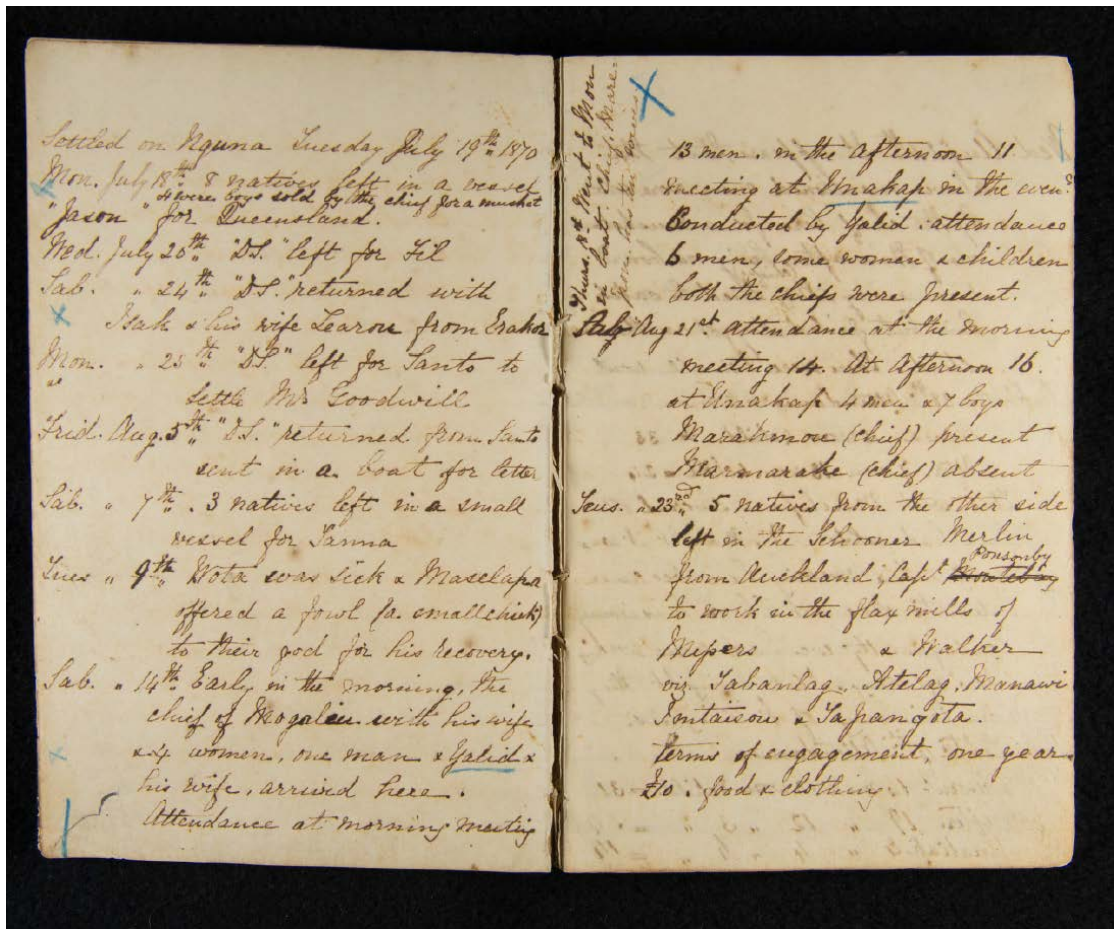 Settled on Nguna Tuesday July 19th 1870
Mon. July 18th 8 natives left in a vessel
4 were boys sold by the chief for a musket
"Jason" for Queensland.
Wed. July 20th "DS." left for Fil
Sab. " 24th "DS." returned with
Isak & his wife Learou from Erakor
Mon. " 25th "DS." left for Santo to
settle Mr Goodwill
Frid. Aug. 5th "DS." returned from Santo
sent in a boat for letter
Sab. " 7th. 3 natives left in a small
vessel for Tanna
Tues " 9th Wota was sick & Maselapa
offered a fowl (a small chick)
to their god for his recovery.
Sab. " 14th Early in the morning, the
chief of Mogaliu with his wife
& 4 women, one man & Yalid &
his wife, arrived here.
Attendance at morning meeting
Thurs. 18th Went to Mou
in boat. chief Mare=
has ten wives
13 men. in the afternoon 11
meeting at Unakap in the even.g
Conducted by Yalid. attendance
6 men, some women & children
both the chiefs were present.
Sab Aug 21st. attendance at the morning
meeting 14. At Afternoon 16.
at Unakap 4 men & 7 boys
Marakmou (chief) present
Marmarake (chief) absent
Teus. " 23rd 5 natives from the other side
left in the Schooner Merlin
Ponsonby
from Auckland, Capt
to work in the flax mills of
Messers & Walker
viz. Tabanlag, Atelag, Manawi
Intaisou & Tapangota.
terms of engagement, one year.
£10. food & clothing